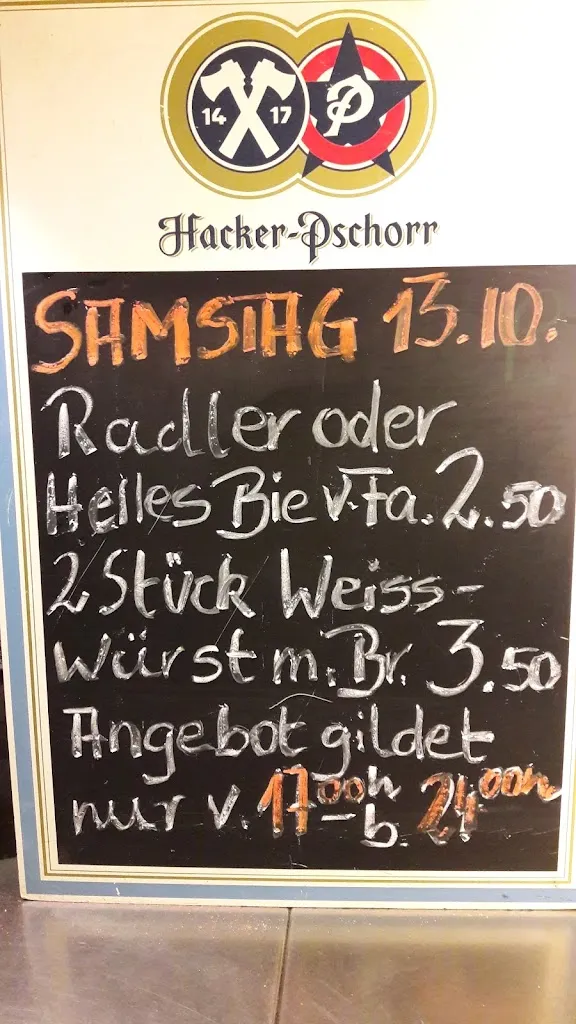 14 17 P
Hacker-Pschorr
SAMSTAG 13.10.
Radler oder
Helles Bie v. Fa. 2.50
2 Stück Weiss-
würst m. Br. 3.50
Angebot gildet
nur v. 17ººh - b. 24ººh